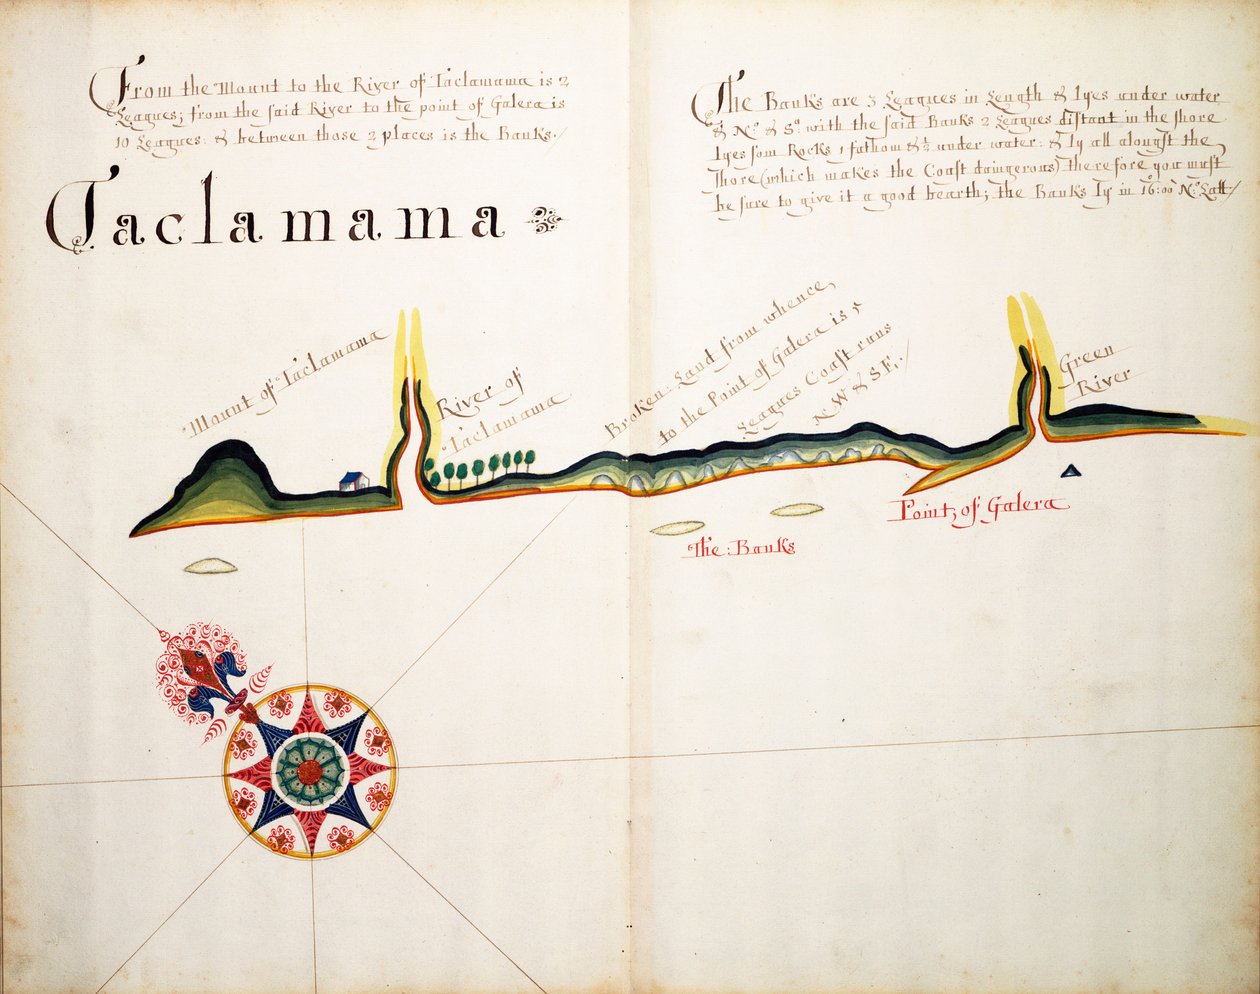 From the Mount to the River of Taclamama is 2
Leagues; from the said River to the point of Galera is
10 Leagues: & between those 2 places is the Banks./
Taclamama
The Banks are 3 Leagues in Length & lyes under water
& No. & So. with the said Banks 2 Leagues distant in the shore
lyes som Rocks 1 fathom & ½ under water: & ly all alongst the
shore (which makes the Coast dangerous) therefore you must
be sure to give it a good bearth; the Banks ly in 16°:00 No. Latt/
Mount of Taclamama
River of
Taclamama
Broken: Land from whence
to the Point of Galera is 5
Leagues Coast runs
NW & SE./
Green
River
Point of Galera
The: Banks